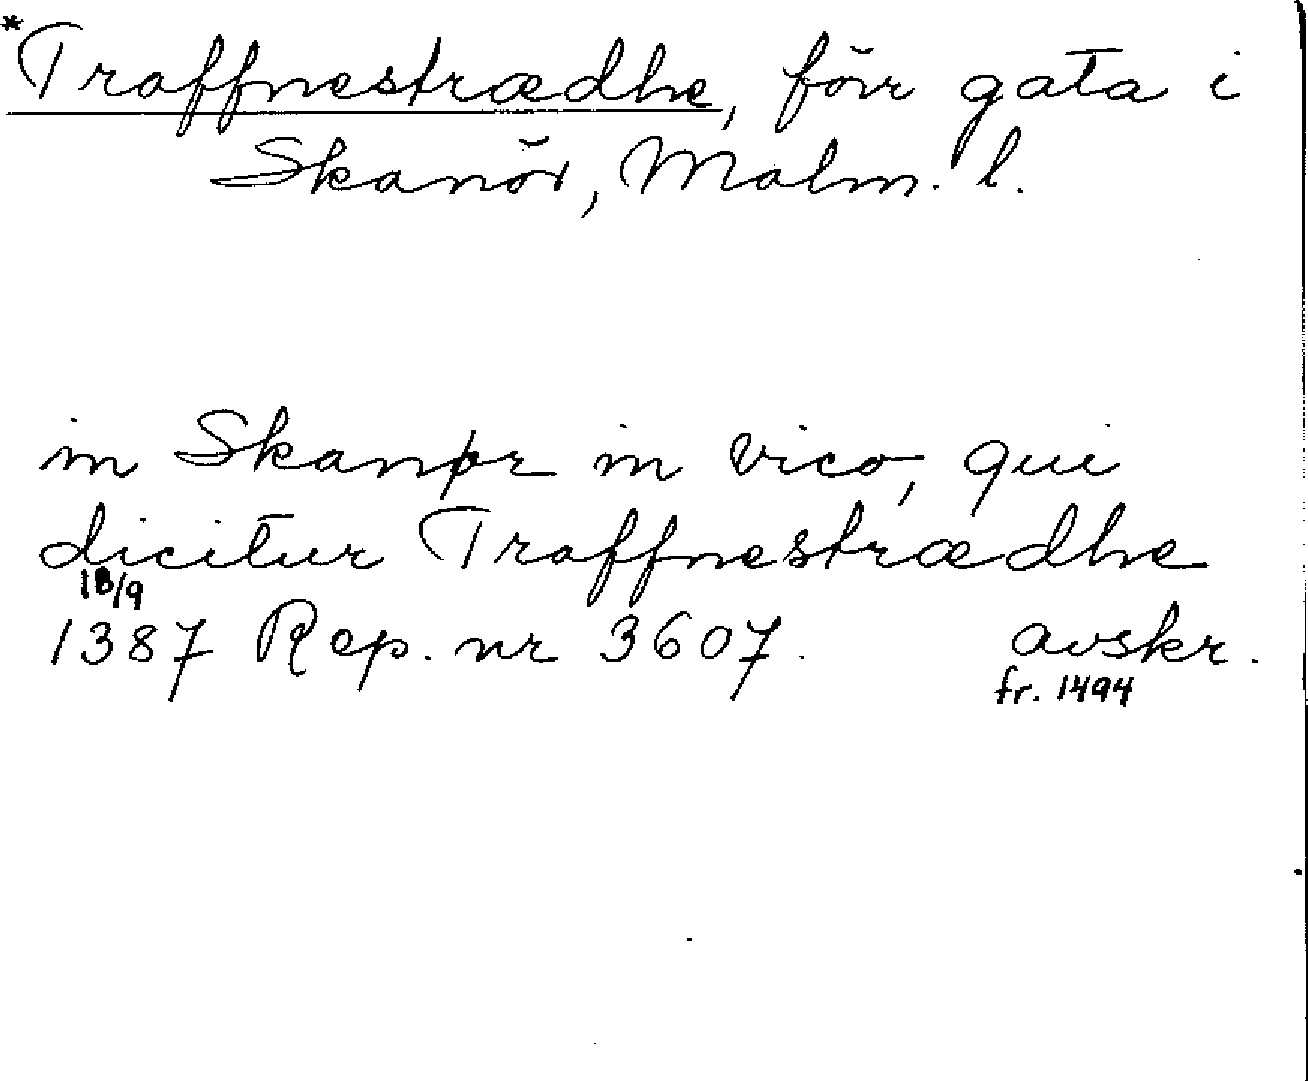 *Traffnestrædhe, förr gata i
Skanör, Malm. l.
in Skanør in vico, qui
dicitur Traffnestrædhe
18/9
1387 Rep. nr 3607. avskr.
fr. 1494